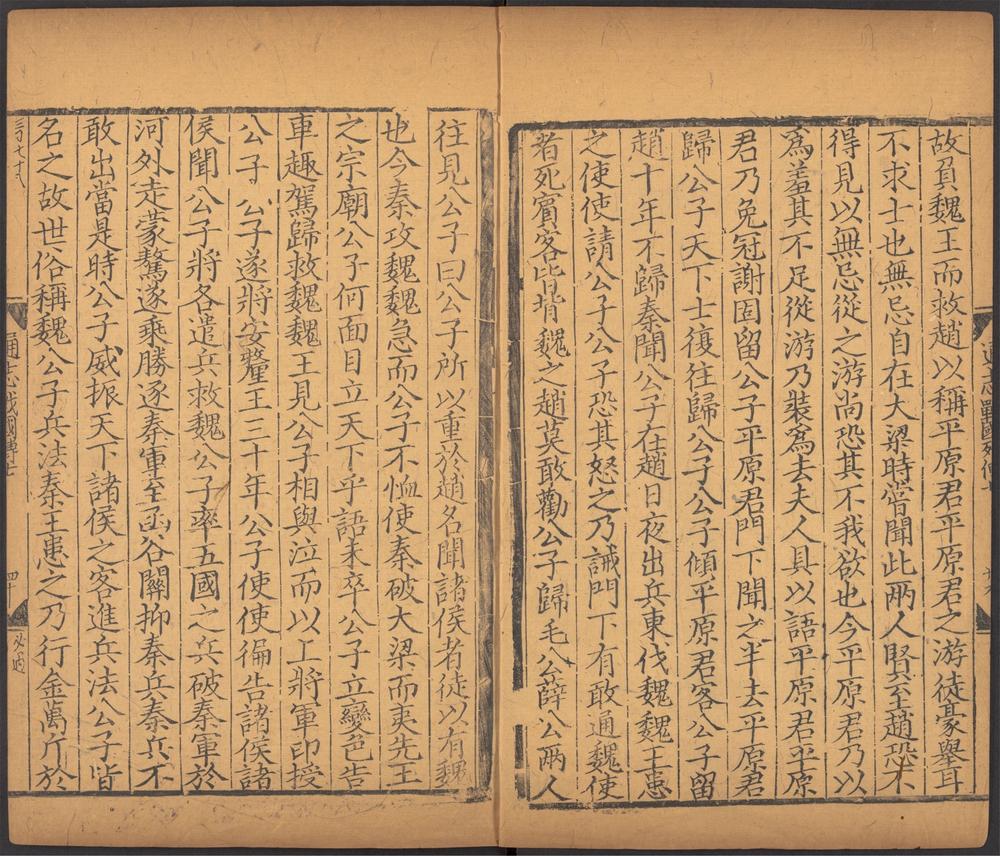 故負魏王而救趙以稱平原君平原君之游徒豪舉耳
不求士也無忌自在大梁時嘗聞此兩人賢至趙恐不
得見以無忌從之游尚恐其不我欲也今平原君乃以
爲羞其不足從游乃裝爲去夫人具以語平原君平原
君乃免冠謝固留公子平原君門下聞之半去平原君
歸公子天下士復往歸公子公子傾平原君客公子留
趙十年不歸秦聞公子在趙日夜出兵東伐魏魏王患
之使使請公子公子恐其怒之乃誡門下有敢通魏使
者死賓客皆背魏之趙莫敢勸公子歸毛公薛公兩人
往見公子曰公子所以重於趙名聞諸侯者徒以有魏
也今秦攻魏魏急而公子不恤使秦破大梁而夷先王
之宗廟公子何面目立天下乎語未卒公子立變色告
車趣駕歸救魏魏王見公子相與泣而以上將軍印授
公子公子遂將安釐王三十年公子使使徧告諸侯諸
侯聞公子將各遣兵救魏公子率五國之兵破秦軍於
河外走蒙驁遂乘勝逐秦軍至函谷關抑秦兵秦兵不
敢出當是時公子威振天下諸侯之客進兵法公子皆
名之故世俗稱魏公子兵法秦王患之乃行金萬斤於
通志戰國傳七 四十